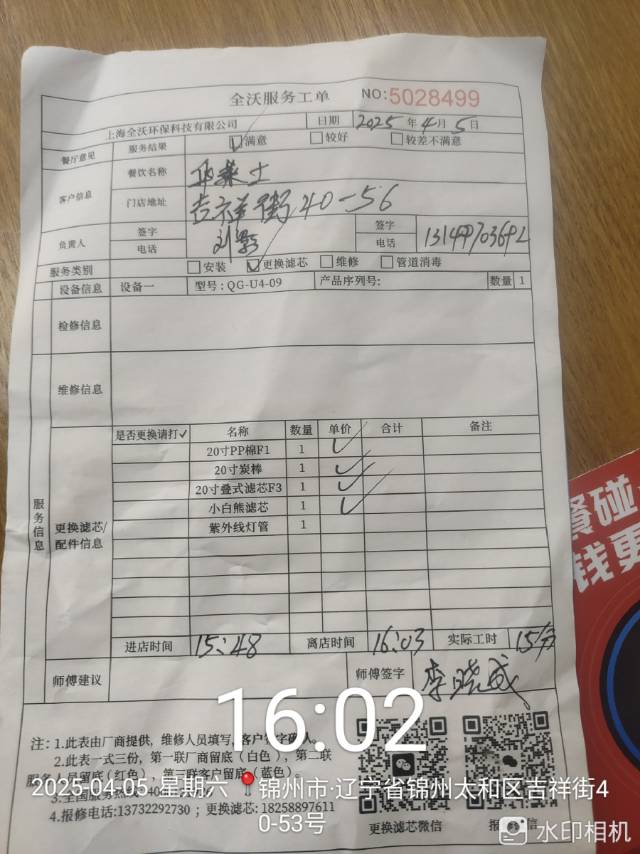 全沃服务工单 NO:5028499
上海全沃环保科技有限公司 日期 2025年4月5日
餐厅意见 服务结果 ☑满意 □较好 □较差不满意
客户信息 餐饮名称 华莱士
门店地址 吉祥街40-56
负责人 签字 签字
电话 电话
服务类别 □安装 ☑更换滤芯 □维修 □管道消毒
设备信息 设备一 型号:QG-U4-09 产品序列号: 数量 1
检修信息
维修信息
服务信息
更换滤芯/配件信息
是否更换请打✓ 名称 数量 单价 合计 备注
20寸PP棉F1 1 ✓
20寸炭棒 1 ✓
20寸叠式滤芯F3 1 ✓
小白熊滤芯 1 ✓
紫外线灯管 1
进店时间 15:48 离店时间 16:03 实际工时 15分
师傅建议 师傅签字 李晓威
16:02
注:1.此表由厂商提供,维修人员填写,客户签字确认。
2.此表一式三份,第一联厂商留底(白色),第二联
服务人员留底(红色),第三联客户留底(蓝色)。
3.全国服务热线:40
4.报修电话:13732292730;更换滤芯:18258897611
更换滤芯微信
2025-04-05 星期六 锦州市·辽宁省锦州太和区吉祥街40-53号
水印相机
餐碰
钱更